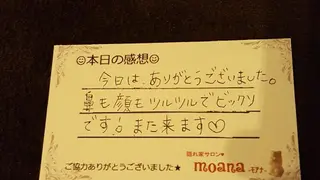 ☺本日の感想☺
今日は、ありがとうございました。
鼻も顔もツルツルでビックリ
です!また来ます♡
隠れ家サロン♥
ご協力ありがとうございました★
moana -モアナ-